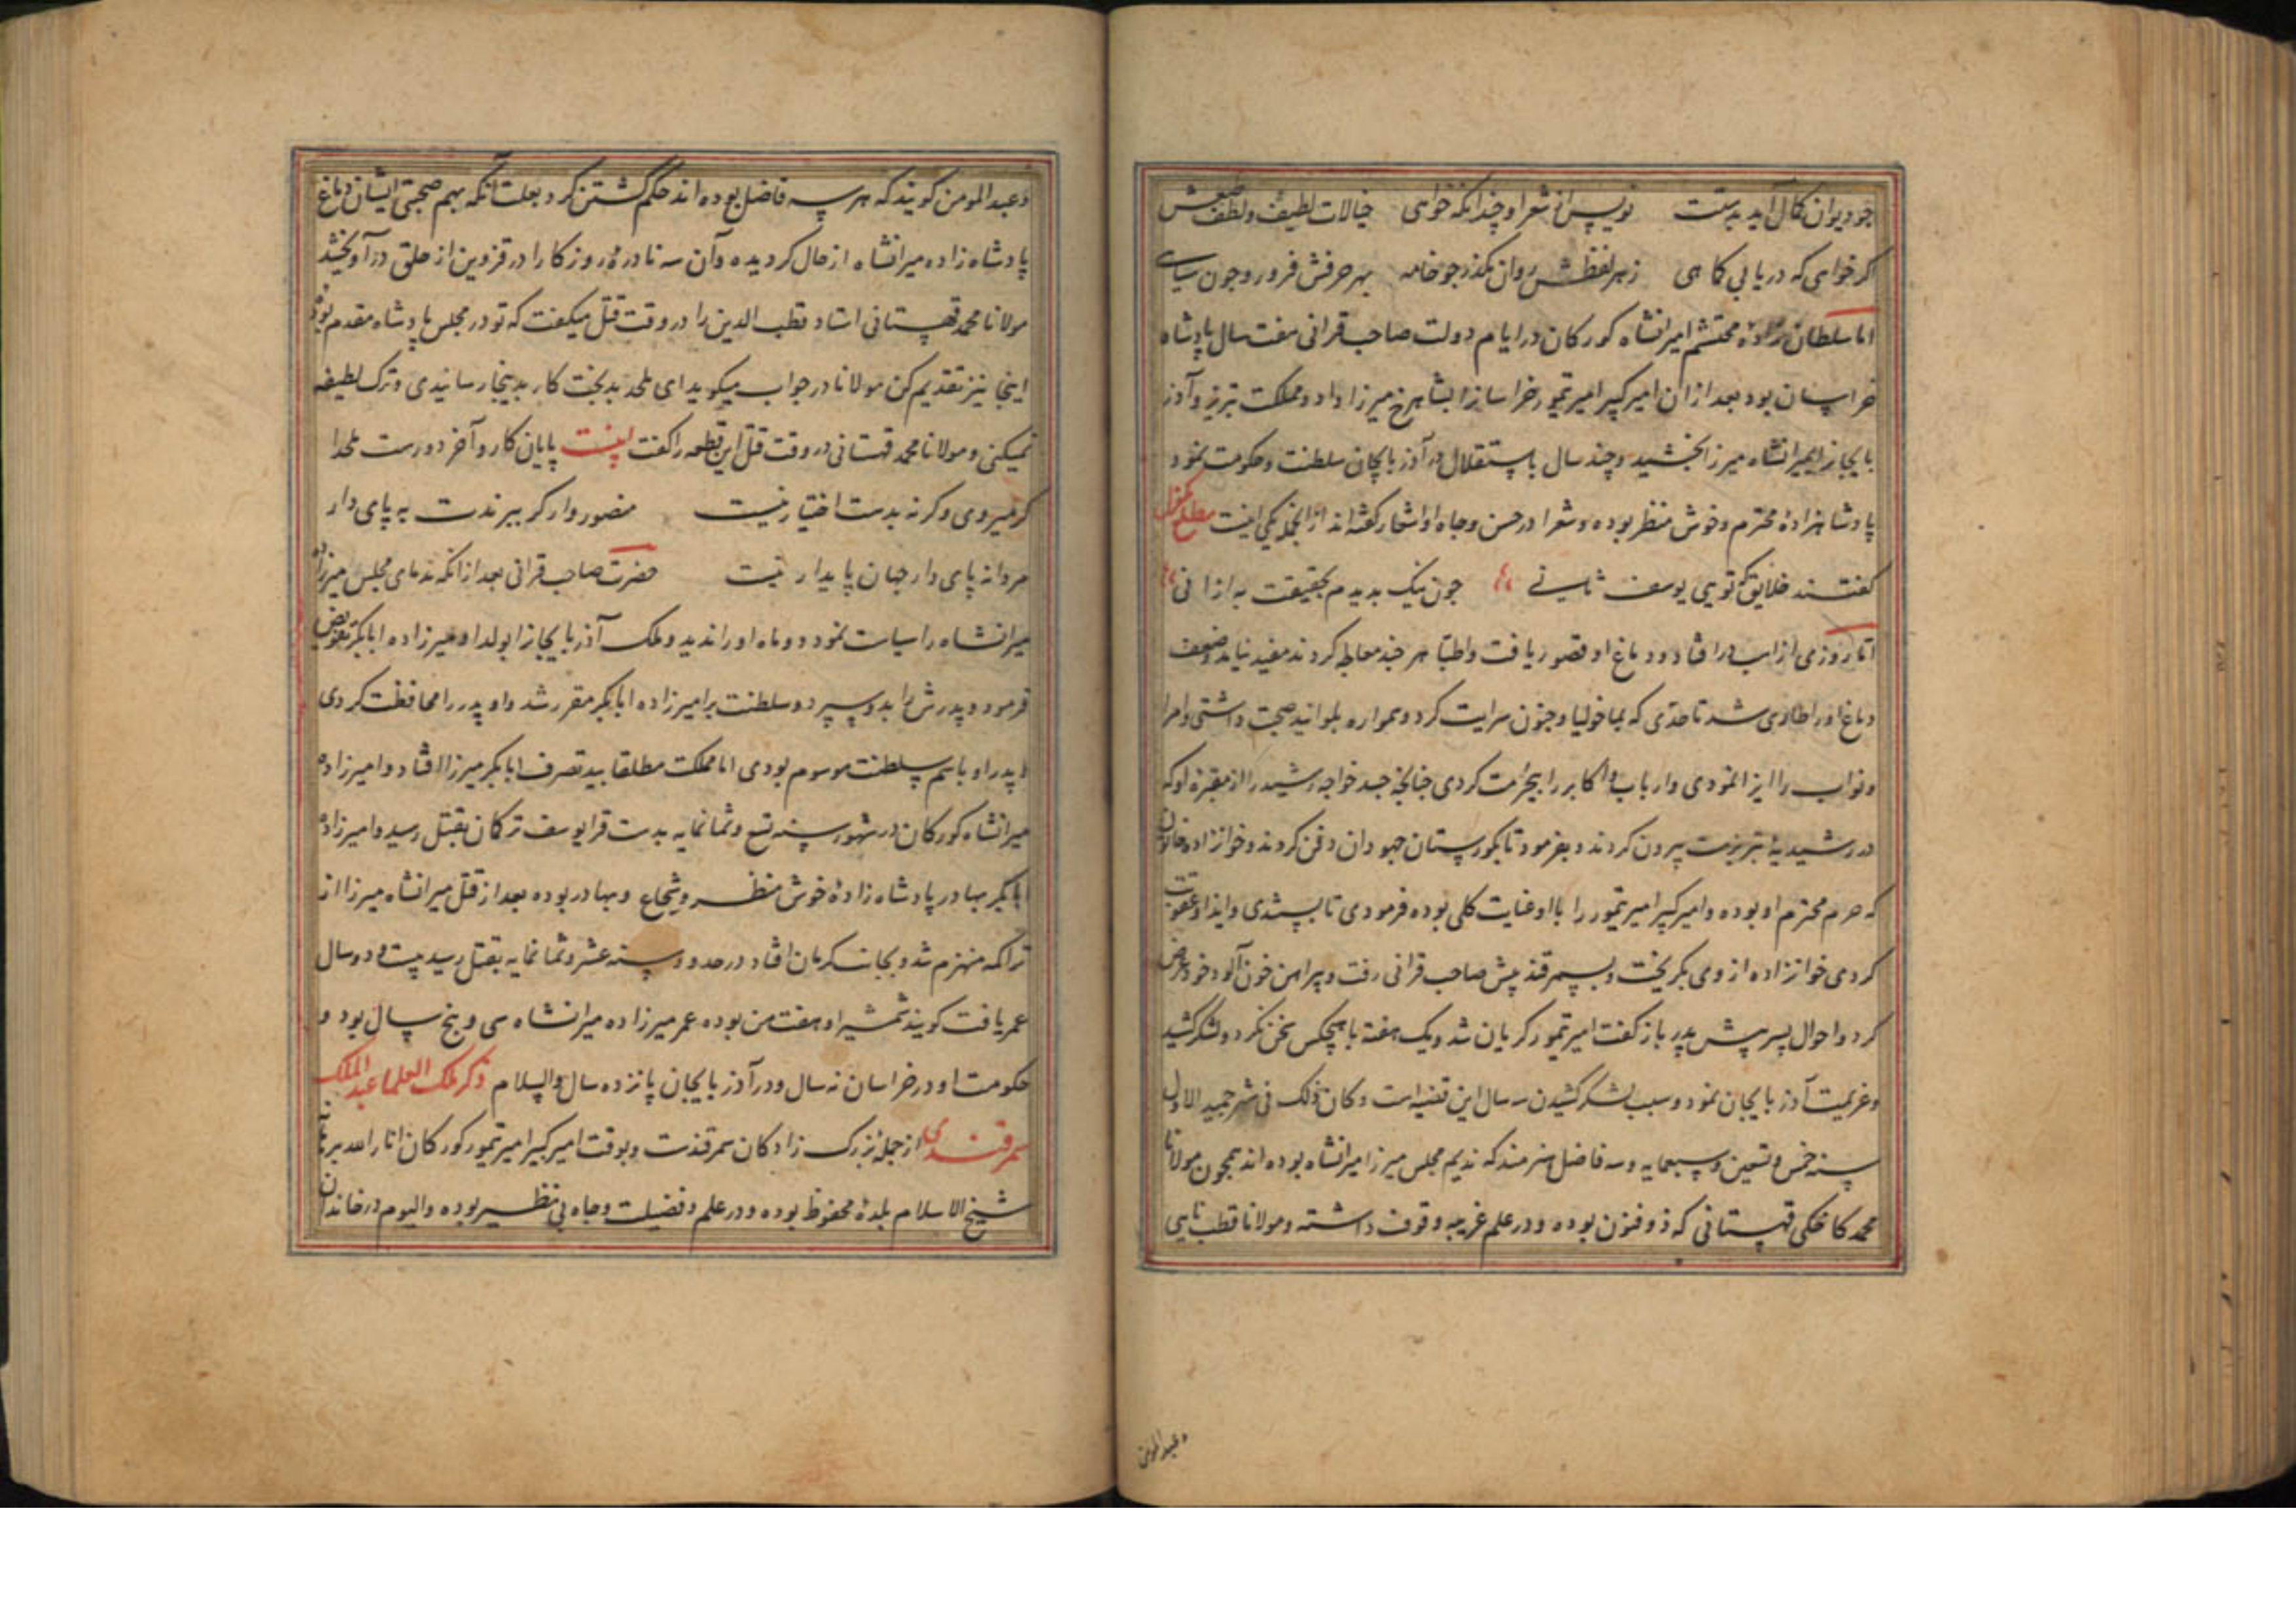 چو دیوان کمال آید بدستت نویس از شعر او چندانکه خواهی خیالات لطیف و لفظ
اگر خواهی که دریابی کماهی ز هر لفظش روان مگذر چو خامه بهر حرفش فرو رو چون سیاهی
اما سلطان زاده محتشم امیرانشاه کورکان در ایام دولت صاحب قرانی هفت سال پادشاه
خراسان بود بعد از ان امیر کبیر امیر تیمور خراسانرا بشاهرخ میرزا داد و مملکت تبریز و آذر
بایجانرا بمیرانشاه میرزا بخشید و چند سال باستقلال در آذربایجان سلطنت و حکومت نمود و
پادشاهزاده محترم و خوش منظر بوده و شعرا در حسن و جاه او اشعار گفته‌اند از آنجمله یکی اینست مطلع
گفتند خلایق که تویی یوسف ثانی چون نیک بدیدم بحقیقت به از آنی
اما روزی از اسب در افتاد و دماغ او قصور یافت و اطبا هر چند معالجه کردند مفید نیامد و ضعف
دماغ او را طاری شد تا حدی که بماخولیا و جنون سرایت کرد و همواره بلوانید صحبت داشتی و امرا
و نواب را ایزا نمودی و ارباب و اکابر را بیحرمت کردی چنانچه جسد خواجه رشید را از مقبره او که
در رشیدیه تبریزست بیرون کردند و بفرمود تا بگورستان جهودان دفن کردند و خوانزاده خاتون
که حرم محترم او بوده و امیر کبیر امیر تیمور را با او عنایت کلی بوده فرمودی تا ببستندی و ایذا و عقوبت
کردی خوانزاده از وی بگریخت و بسمرقند پیش صاحب قرانی رفت و پیراهن خون آلود خود عرض
کرد و احوال پسر پیش پدر باز گفت امیر تیمور گریان شد و یک هفته با هیچکس سخن نکرد و لشکر کشید
و عزیمت آذربایجان نمود و سبب لشکر کشیدن سه سال این قضیه است و کان ذلک فی شهر جمید الاول
سنه خمس و تسعین و سبعمایه و سه فاضل هنرمند که ندیم مجلس میرزا میرانشاه بوده‌اند همچون مولانا
محمد کاخکی قهستانی که ذوفنون بوده و در علم غریبه وقوف داشته و مولانا قطب نایی
و عبد المومن
و عبد المومن گویند که هر سه فاضل بوده‌اند حکم گشتن کرد بعلت آنکه بهم صحبتی ایشان دماغ
پادشاه زاده میرانشاه از حال گردیده و آن سه نادره روزکار را در قزوین از حلق در آویخشد
مولانا محمد قهستانی استاد قطب الدین را در وقت قتل میگفت که تو در مجلس پادشاه مقدم بودی
اینجا نیز تقدیم کن مولانا در جواب میگوید ای ملحد بدبخت کار بدینجا رسانیدی و ترک لطیفه
نمیکنی و مولانا محمد قهستانی در وقت قتل این قطعه را گفت پایان کار و آخر دورست ملحدا
گر میروی و گرنه بدست اختیار نیست منصوروار گر ببرندت به پای دار
مردانه پای دار جهان پایدار نیست حضرت صاحب قرانی بعد از انکه ندمای مجلس میرزاده
میرانشاه را سیاست نمود دو ماه او را ندید و ملک آذربایجانرا بولد او میرزاده ابابکر تفویض
فرمود و پدرش را بدو سپرد و سلطنت بر امیرزاده ابابکر مقرر شد و او پدر را محافظت کردی
و پدر او باسم سلطنت موسوم بودی اما مملکت مطلقا بید تصرف ابابکر میرزا افتاد و امیرزاده
میرانشاه کورکان در شهور سنه تسع و ثمانمایه بدست قرایوسف ترکان بقتل رسید و امیرزاده
ابابکر بهادر پادشاه زاده خوش منظر و شجاع و بهادر بوده بعد از قتل میرانشاه میرزا از
تراکمه منهزم شد و بجانب کرمان افتاد در حدود سنه عشر و ثمانمایه بقتل رسید بیست و دو سال
عمر یافت گویند شمشیر او هفت من بوده عمر میرزاده میرانشاه سی و پنج سال بود و
حکومت او در خراسان نه سال و در آذربایجان پانزده سال والسلام ذکر ملک العلما عبد الملک
سمرقندی از جمله بزرک زادکان سمرقندست و بوقت امیر کبیر امیر تیمور کورکان انار الله برهانه
شیخ الاسلام بلده محفوظ بوده و در علم و فضیلت و جاه بی نظیر بوده و الیوم در خاندان